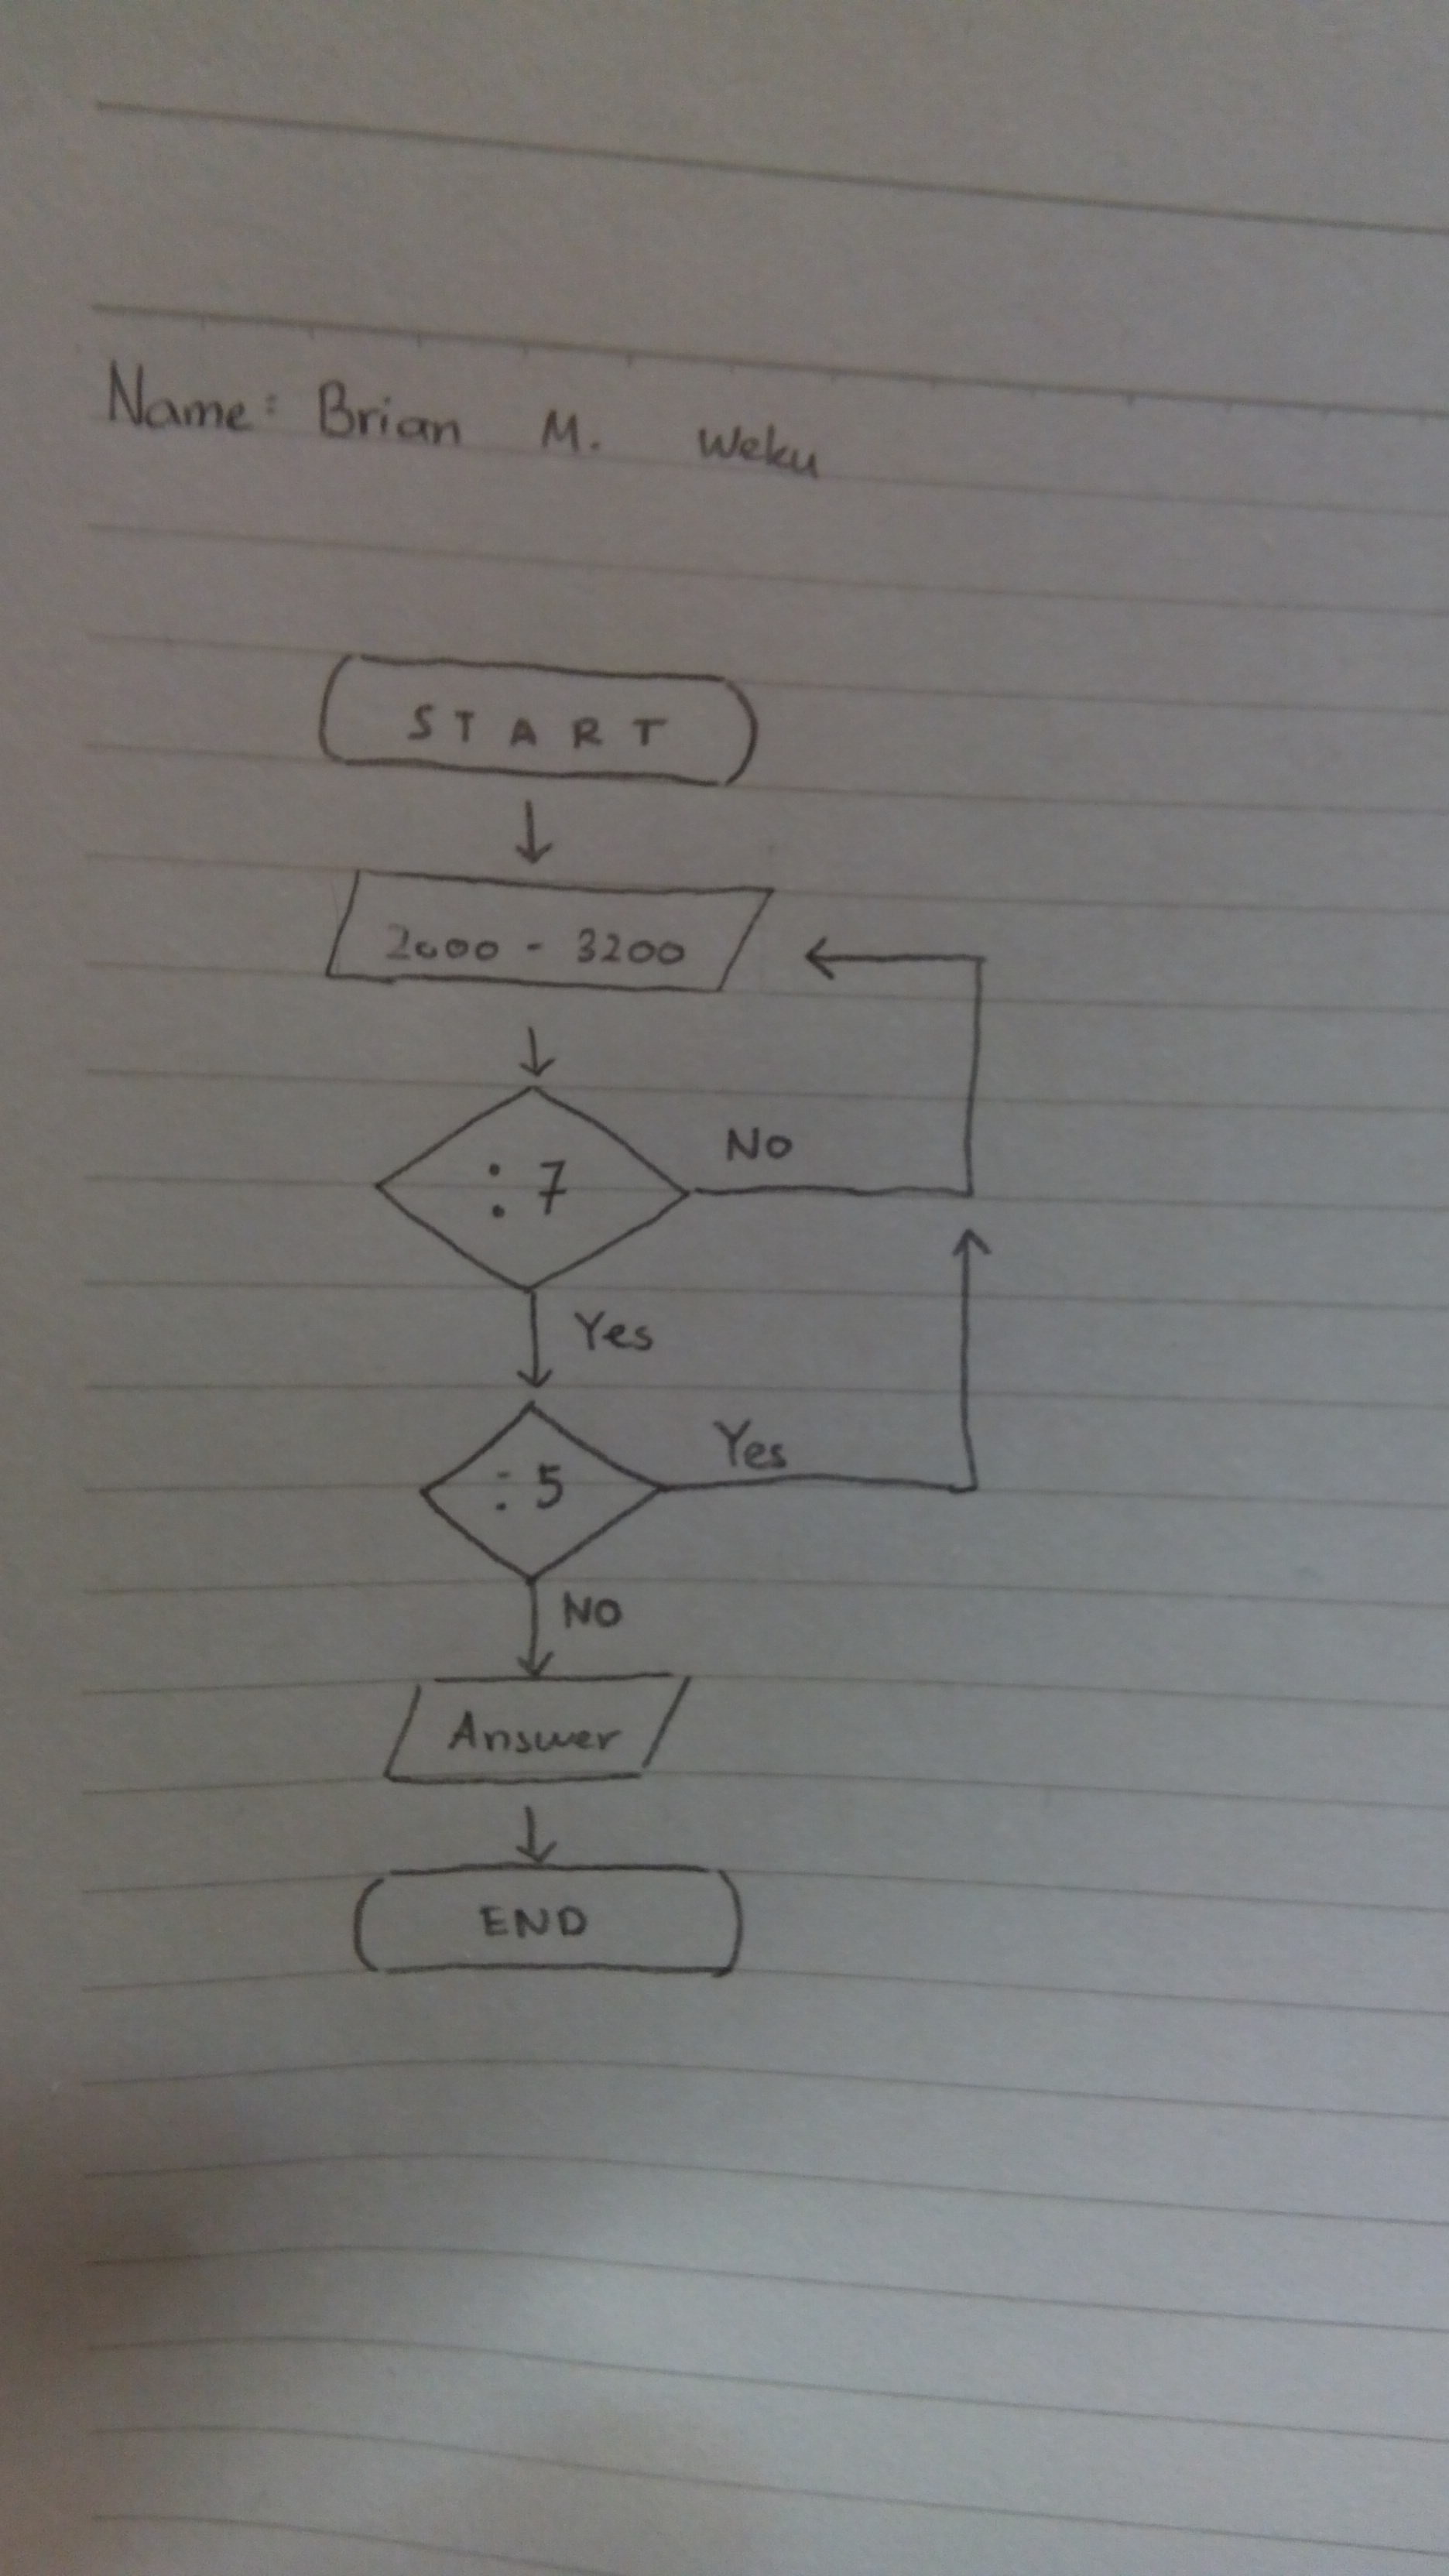 Name: Brian M. Weku
START
2000 - 3200
: 7
No
Yes
: 5
Yes
NO
Answer
END